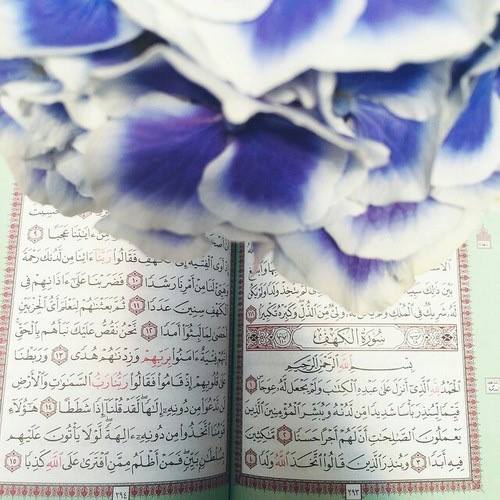 وَلَمْ يَكُن
شَرِيكٌ فِي ٱلْمُلْكِ وَلَمْ يَكُن لَّهُۥ وَلِيٌّ مِّنَ ٱلذُّلِّ وَكَبِّرْهُ تَكْبِيرًۢا ١١١
سُورَةُ الكَهْفِ
بِسْمِ ٱللَّهِ ٱلرَّحْمَٰنِ ٱلرَّحِيمِ
ٱلْحَمْدُ لِلَّهِ ٱلَّذِىٓ أَنزَلَ عَلَىٰ عَبْدِهِ ٱلْكِتَٰبَ وَلَمْ يَجْعَل لَّهُۥ عِوَجَا ١
قَيِّمًا لِّيُنذِرَ بَأْسًا شَدِيدًا مِّن لَّدُنْهُ وَيُبَشِّرَ ٱلْمُؤْمِنِينَ ٱلَّذِينَ
يَعْمَلُونَ ٱلصَّٰلِحَٰتِ أَنَّ لَهُمْ أَجْرًا حَسَنًا ٢ مَّٰكِثِينَ
فِيهِ أَبَدًا ٣ وَيُنذِرَ ٱلَّذِينَ قَالُوا۟ ٱتَّخَذَ ٱللَّهُ وَلَدًا ٤
٢٩٣
حَسِبْتَ
ءَايَٰتِنَا عَجَبًا ٩
إِذْ أَوَى ٱلْفِتْيَةُ إِلَى ٱلْكَهْفِ فَقَالُوا۟ رَبَّنَآ ءَاتِنَا مِن لَّدُنكَ رَحْمَةً
وَهَيِّئْ لَنَا مِنْ أَمْرِنَا رَشَدًا ١٠ فَضَرَبْنَا عَلَىٰٓ ءَاذَانِهِمْ فِى
ٱلْكَهْفِ سِنِينَ عَدَدًا ١١ ثُمَّ بَعَثْنَٰهُمْ لِنَعْلَمَ أَىُّ ٱلْحِزْبَيْنِ
أَحْصَىٰ لِمَا لَبِثُوٓا۟ أَمَدًا ١٢ نَّحْنُ نَقُصُّ عَلَيْكَ نَبَأَهُم بِٱلْحَقِّ
إِنَّهُمْ فِتْيَةٌ ءَامَنُوا۟ بِرَبِّهِمْ وَزِدْنَٰهُمْ هُدًى ١٣ وَرَبَطْنَا
عَلَىٰ قُلُوبِهِمْ إِذْ قَامُوا۟ فَقَالُوا۟ رَبُّنَا رَبُّ ٱلسَّمَٰوَٰتِ وَٱلْأَرْضِ
لَن نَّدْعُوَا۟ مِن دُونِهِۦٓ إِلَٰهًا لَّقَدْ قُلْنَآ إِذًا شَطَطًا ١٤ هَٰٓؤُلَآءِ
قَوْمُنَا ٱتَّخَذُوا۟ مِن دُونِهِۦٓ ءَالِهَةً لَّوْلَا يَأْتُونَ عَلَيْهِم
بِسُلْطَٰنٍۭ بَيِّنٍ فَمَنْ أَظْلَمُ مِمَّنِ ٱفْتَرَىٰ عَلَى ٱللَّهِ كَذِبًا ١٥
٢٩٤